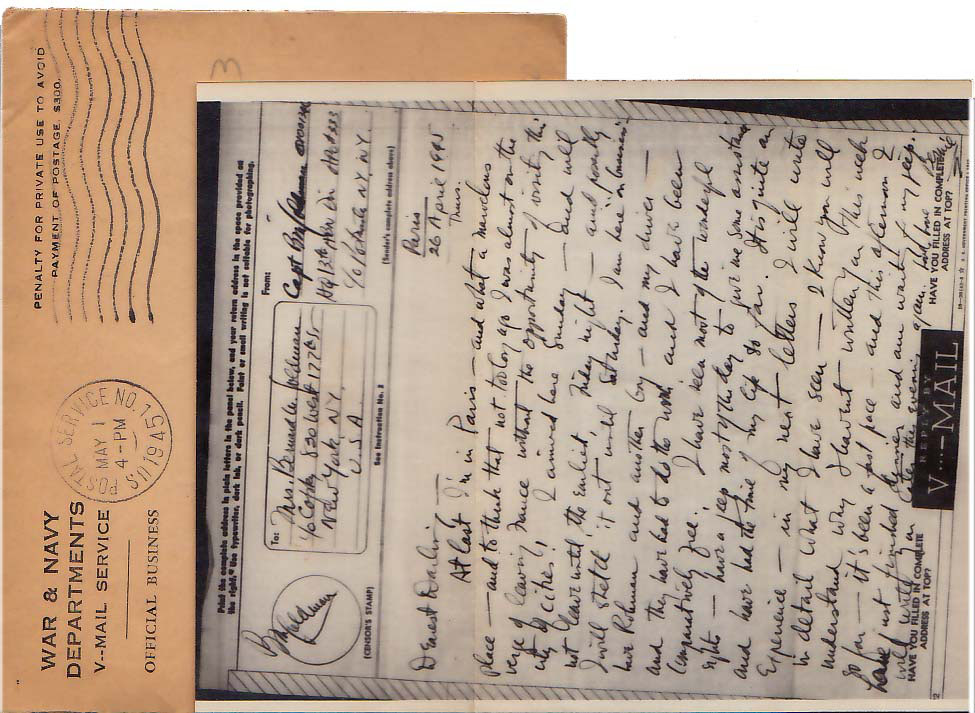 WAR & NAVY
DEPARTMENTS
V---MAIL SERVICE
OFFICIAL BUSINESS
PENALTY FOR PRIVATE USE TO AVOID
PAYMENT OF POSTAGE, $300.
U.S. POSTAL SERVICE NO. 1
MAY 1
4-PM
1945
3
Print the complete address in plain letters in the panel below, and your return address in the space provided on
the right. Use typewriter, dark ink, or dark pencil. Faint or small writing is not suitable for photographing.
To:
Mrs. Bernard
c/o Cohn 830 West 177th St
New York, N.Y.
U.S.A
From:
Capt
Hq 13th
N.Y, N.Y.
(CENSOR'S STAMP)
See Instruction No. 2
(Sender's complete address above)
Paris
26 April 1945
Thurs.
Dearest Darling
At last I'm in Paris — and what a marvelous
place — and to think that not too long ago I was almost on the
verge of leaving France without the opportunity of visiting this
city of cities! I arrived here Sunday — and will
not leave until, the earliest, Friday night — and possibly
I will stretch it out until Saturday. I am here "on business"
have and another boy — and my driver —
and they have had to do the work and I have been
comparatively free! I have seen most of the wonderful
sights — have a jeep most of the day to give me some assistance
and have had the time of my life so far. It is quite an
Experience — in my next letters I will write
in detail what I have seen — I know you will
understand why I haven't written you this week
so far — it's been a fast pace — and this afternoon I
have just finished dinner and am waiting for my jeep.
will write you later this evening again. all love
HAVE YOU FILLED IN COMPLETE
ADDRESS AT TOP?
REPLY BY
V···-MAIL
HAVE YOU FILLED IN COMPLETE
ADDRESS AT TOP?